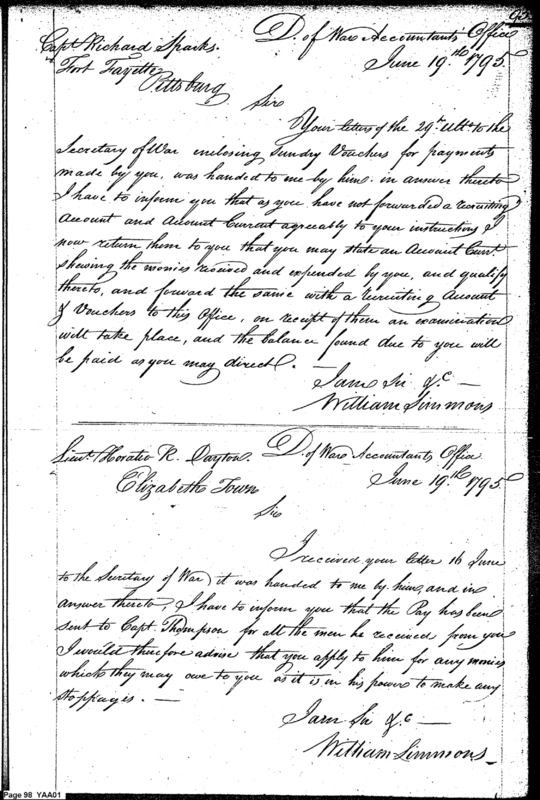 D. of War Accountants Office
Capt. Richard Sparks.
June 19th 1795
Fort Fayette
Pittsburg
Sir
Your letters of the 29th Ulto to the
Secretary of War enclosing Sundry Vouchers for payments
made by you, was handed to me by him. in answer thereto
I have to inform you that as you have not forwarded a recruiting
Account and Account Current agreeably to your instructions I
now return them to you that you may state an Account Curr.t
shewing the monies received and expended by you, and qualify
thereto, and forward the same with a recruiting Account
& Vouchers to this Office, on receipt of them an examination
will take place, and the balance found due to you will
be paid as you may direct. —
I am Sir &c —
William Simmons
Lieut. Horatio R. Dayton
D. of War Accountants Office
Elizabeth Town
June 19th 1795
Sir
I received your letter 16 June
to the Secretary of War, it was handed to me by him, and in
answer thereto, I have to inform you that the Pay has been
sent to Capt. Thompson for all the men he received from you
I would therefore advise that you apply to him for any monies
which they may owe to you as it is in his power to make any
stoppages. —
I am Sir &c —
William Simmons
Page 98 YAA01